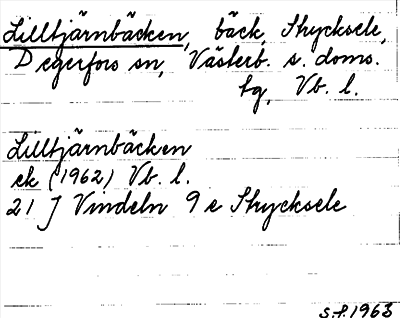 Lilltjärnbäcken, bäck, Strycksele,
Degerfors sn, Västerb. s. doms.
tg, Vb. l.
Lilltjärnbäcken
ek (1962) Vb. l.
21 J Vindeln 9 e Strycksele
S.f. 1963